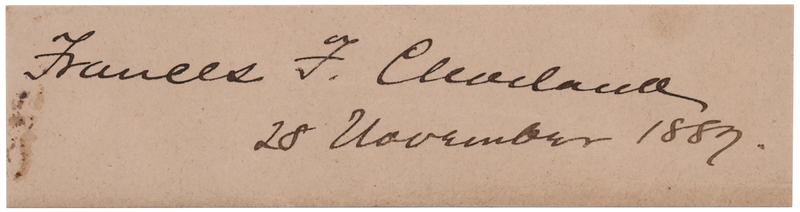 Frances F. Cleveland
28 November 1887.